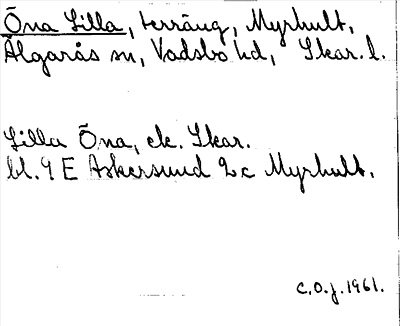 Öna Lilla, terräng, Myrhult,
Älgarås sn, Vadsbo hd, Skar. l.
Lilla Öna, ek. Skar.
bl. 9 E Askersund 2 c Myrhult.
C.O.J. 1961.